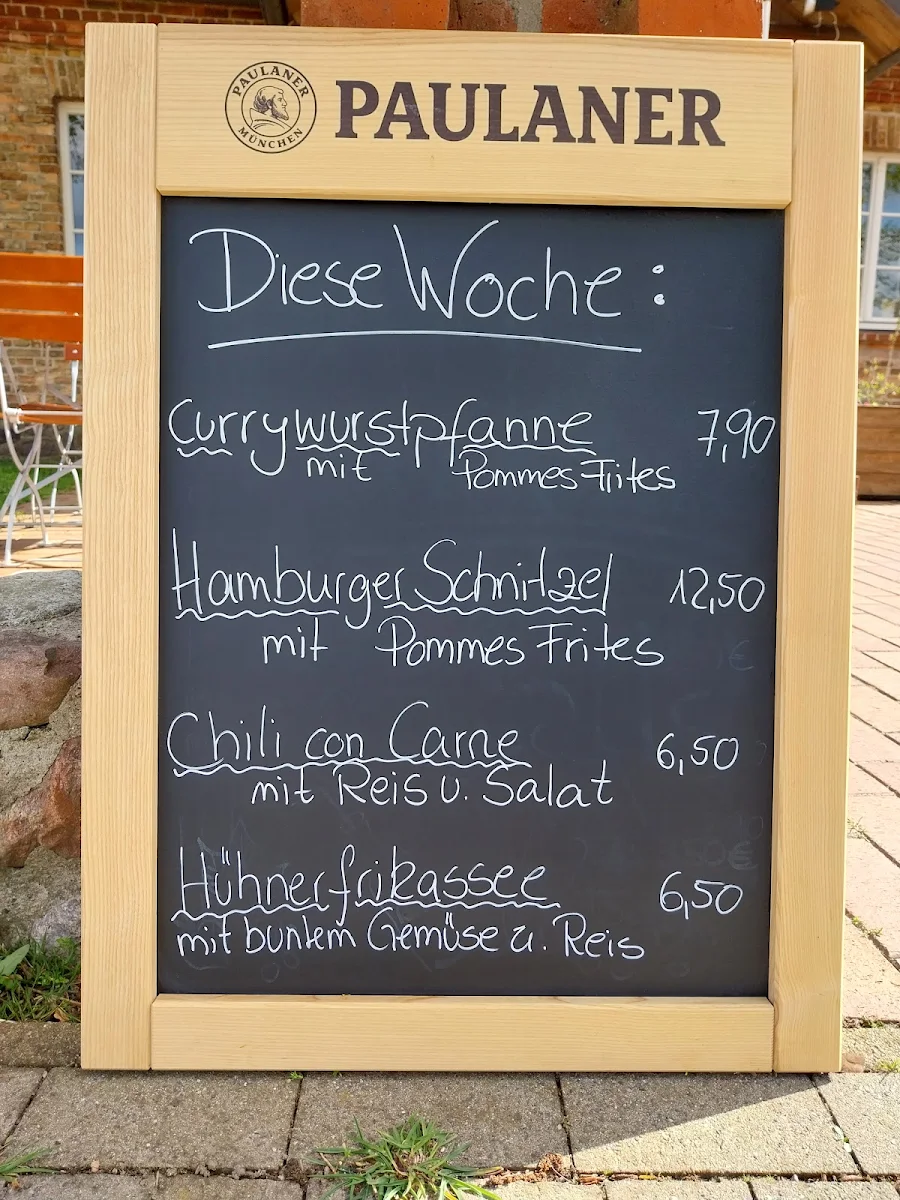 PAULANER
MÜNCHEN
PAULANER
Diese Woche:
Currywurstpfanne 7,90
mit Pommes Frites
Hamburger Schnitzel 12,50
mit Pommes Frites
Chili con Carne 6,50
mit Reis u. Salat
Hühnerfrikassee 6,50
mit buntem Gemüse u. Reis